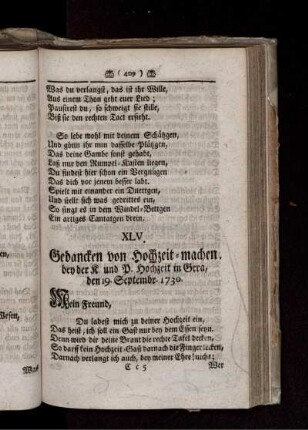 (409)
Was du verlangst, das ist ihr Wille,
Aus einem Thon geht euer Lied;
Pausirest du, so schweigt sie stille,
Biß sie den rechten Tact ersieht.
So lebe wohl mit deinem Schätzgen,
Und gönn ihr nun dasselbe Plätzgen,
Das deine Gambe sonst gehabt,
Laß nur den Rumpel-Kasten liegen,
Du findest hier schon ein Vergnügen
Das dich vor jenem besser labt.
Spielt mit einander ein Duettgen,
Und stellt sich was gedrittes ein,
So singt es in dem Windel-Bettgen
Ein artiges Cantatgen drein.
XLV.
Gedancken von Hochzeit-machen,
bey der K und P. Hochzeit in Gera,
den 19. Septembr. 1730.
Mein Freund,
Du ladest mich zu deiner Hochzeit ein,
Das heist, ich soll ein Gast nur bey dem Essen seyn.
Denn wird dir deine Braut die rechte Tafel decken,
So darff kein Hochzeit-Gast darnach die Finger lecken,
Darnach verlangt ich auch, bey meiner Ehre! nichts;
C c 5
Wer